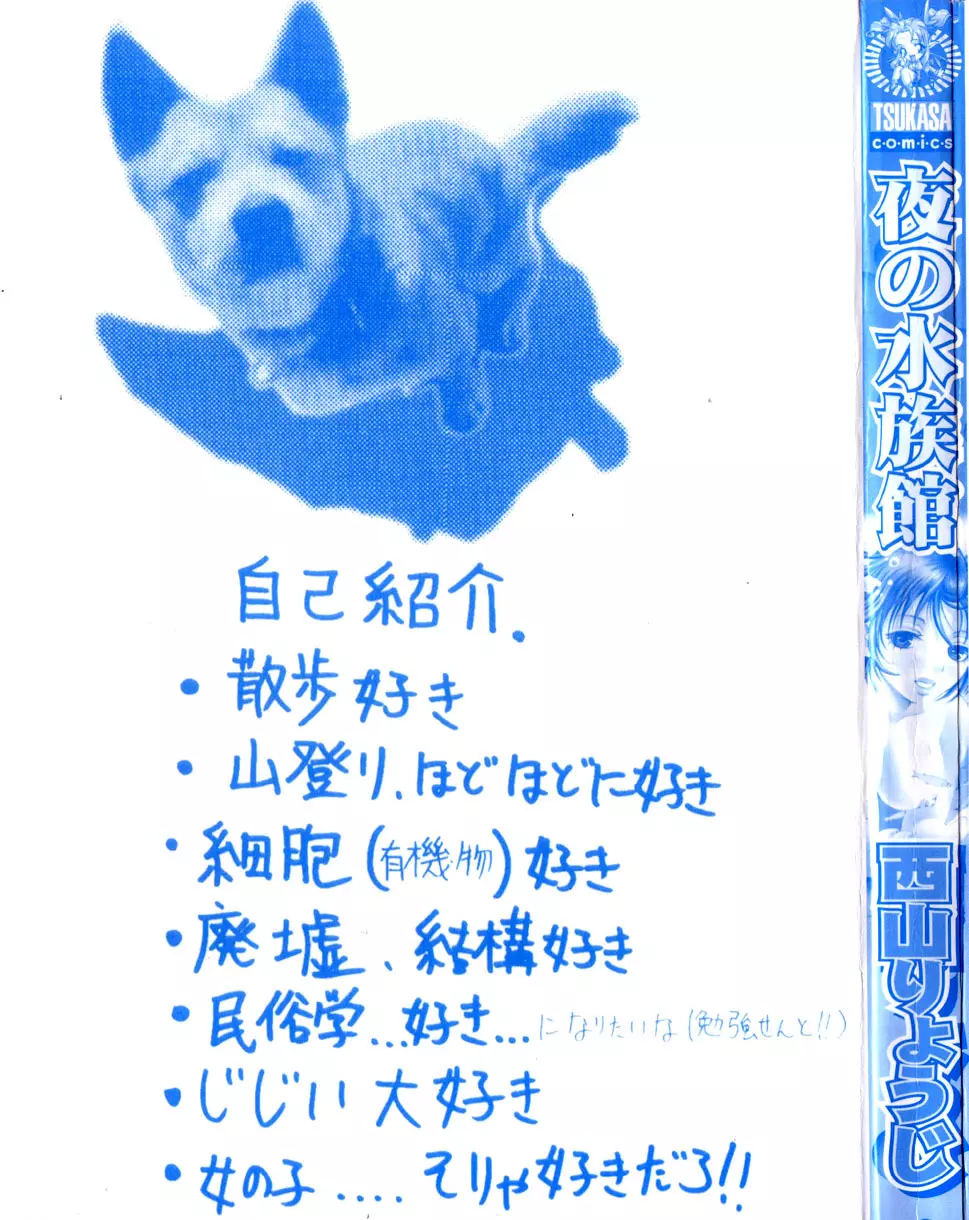 自己紹介.
・散歩好き
・山登り、ほどほどに好き
・細胞(有機物)好き
・廃墟、結構好き
・民俗学...好き...になりたいな(勉強せんと!!)
・じじい大好き
・女の子....そりゃ好きだろ!!
TSUKASA
c・o・m・i・c・s
夜の水族館
西山りょうじ